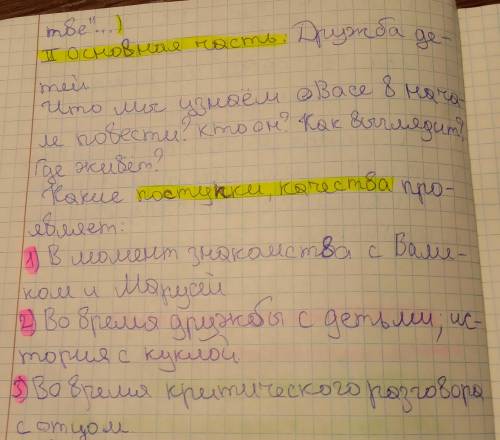 тве"...)
II основная часть. Дружба де-
тей
Что мы узнаём о Васе в нача-
ле повести? кто он? Как выглядит?
Где живёт?
Какие поступки, качества про-
являет:
1) В момент знакомства с Вале-
ком и Марусей
2) Во время дружбы с детьми; ис-
тория с куклой.
3) Во время критического разговора
с отцом